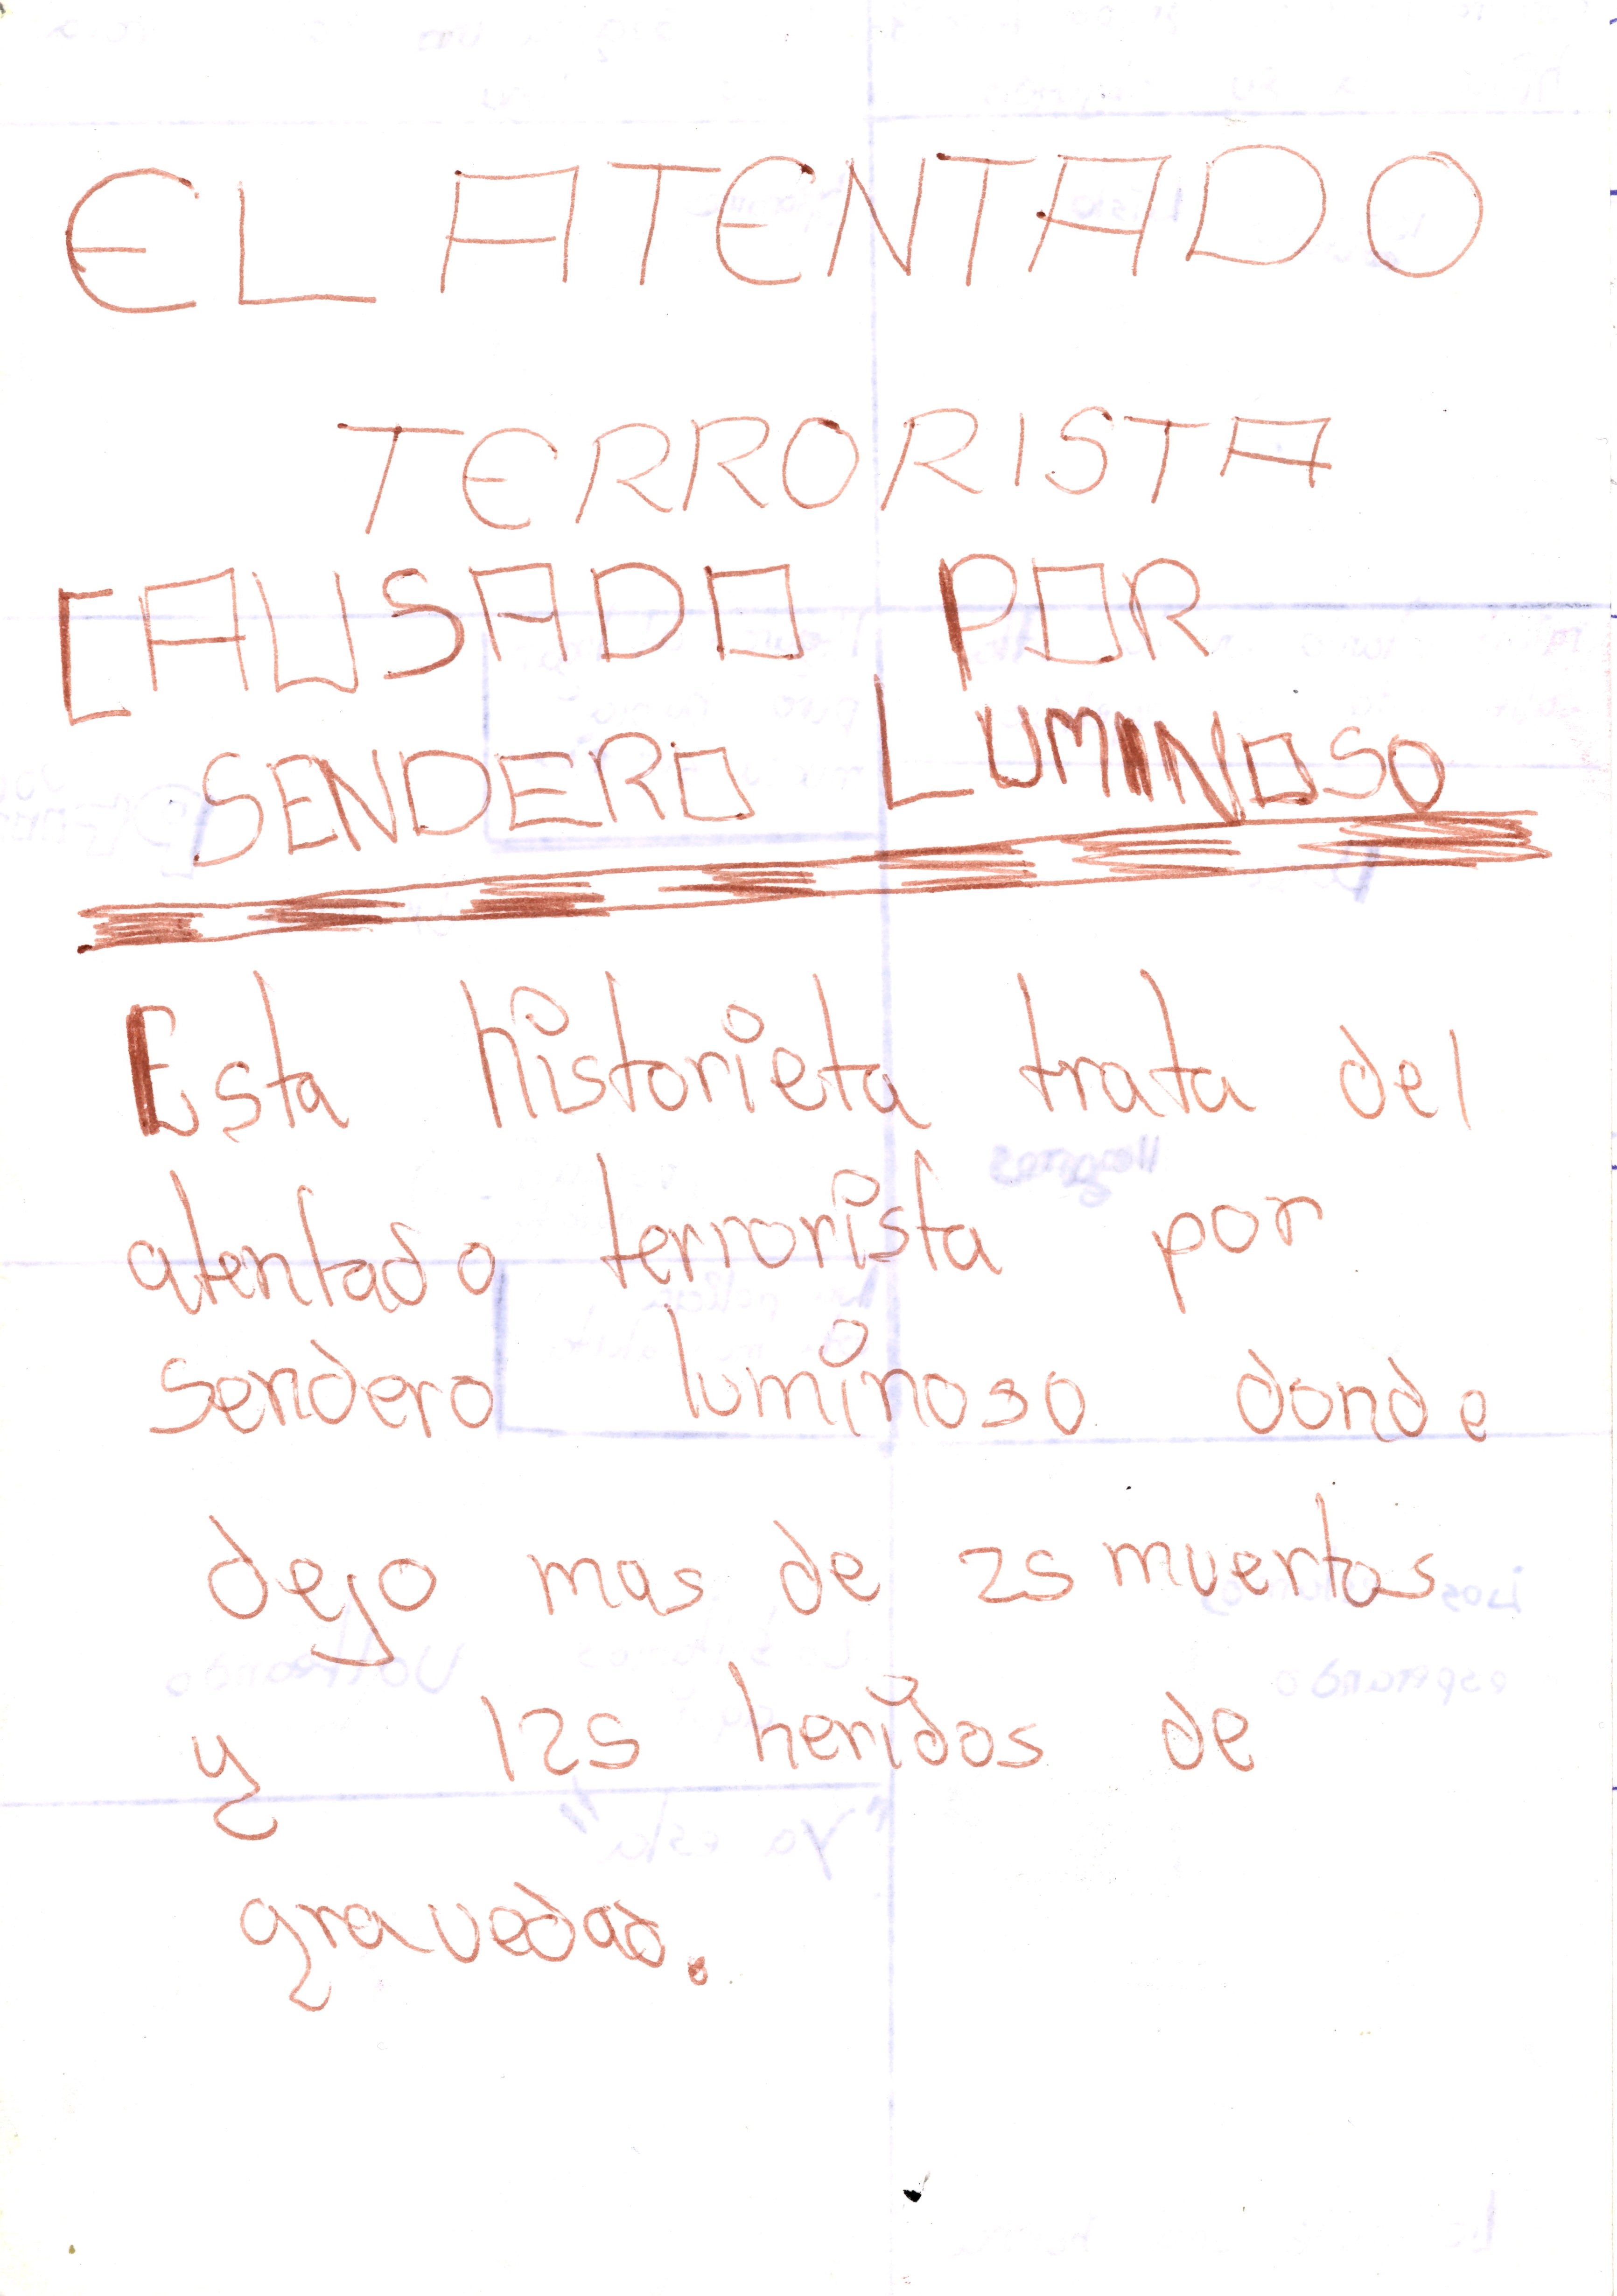 EL ATENTADO
TERRORISTA
CAUSADO POR
SENDERO LUMINOSO
Esta historieta trata del
atentado terrorista por
sendero luminoso donde
dejo mas de 25 muertos
y 125 heridos de
gravedad.